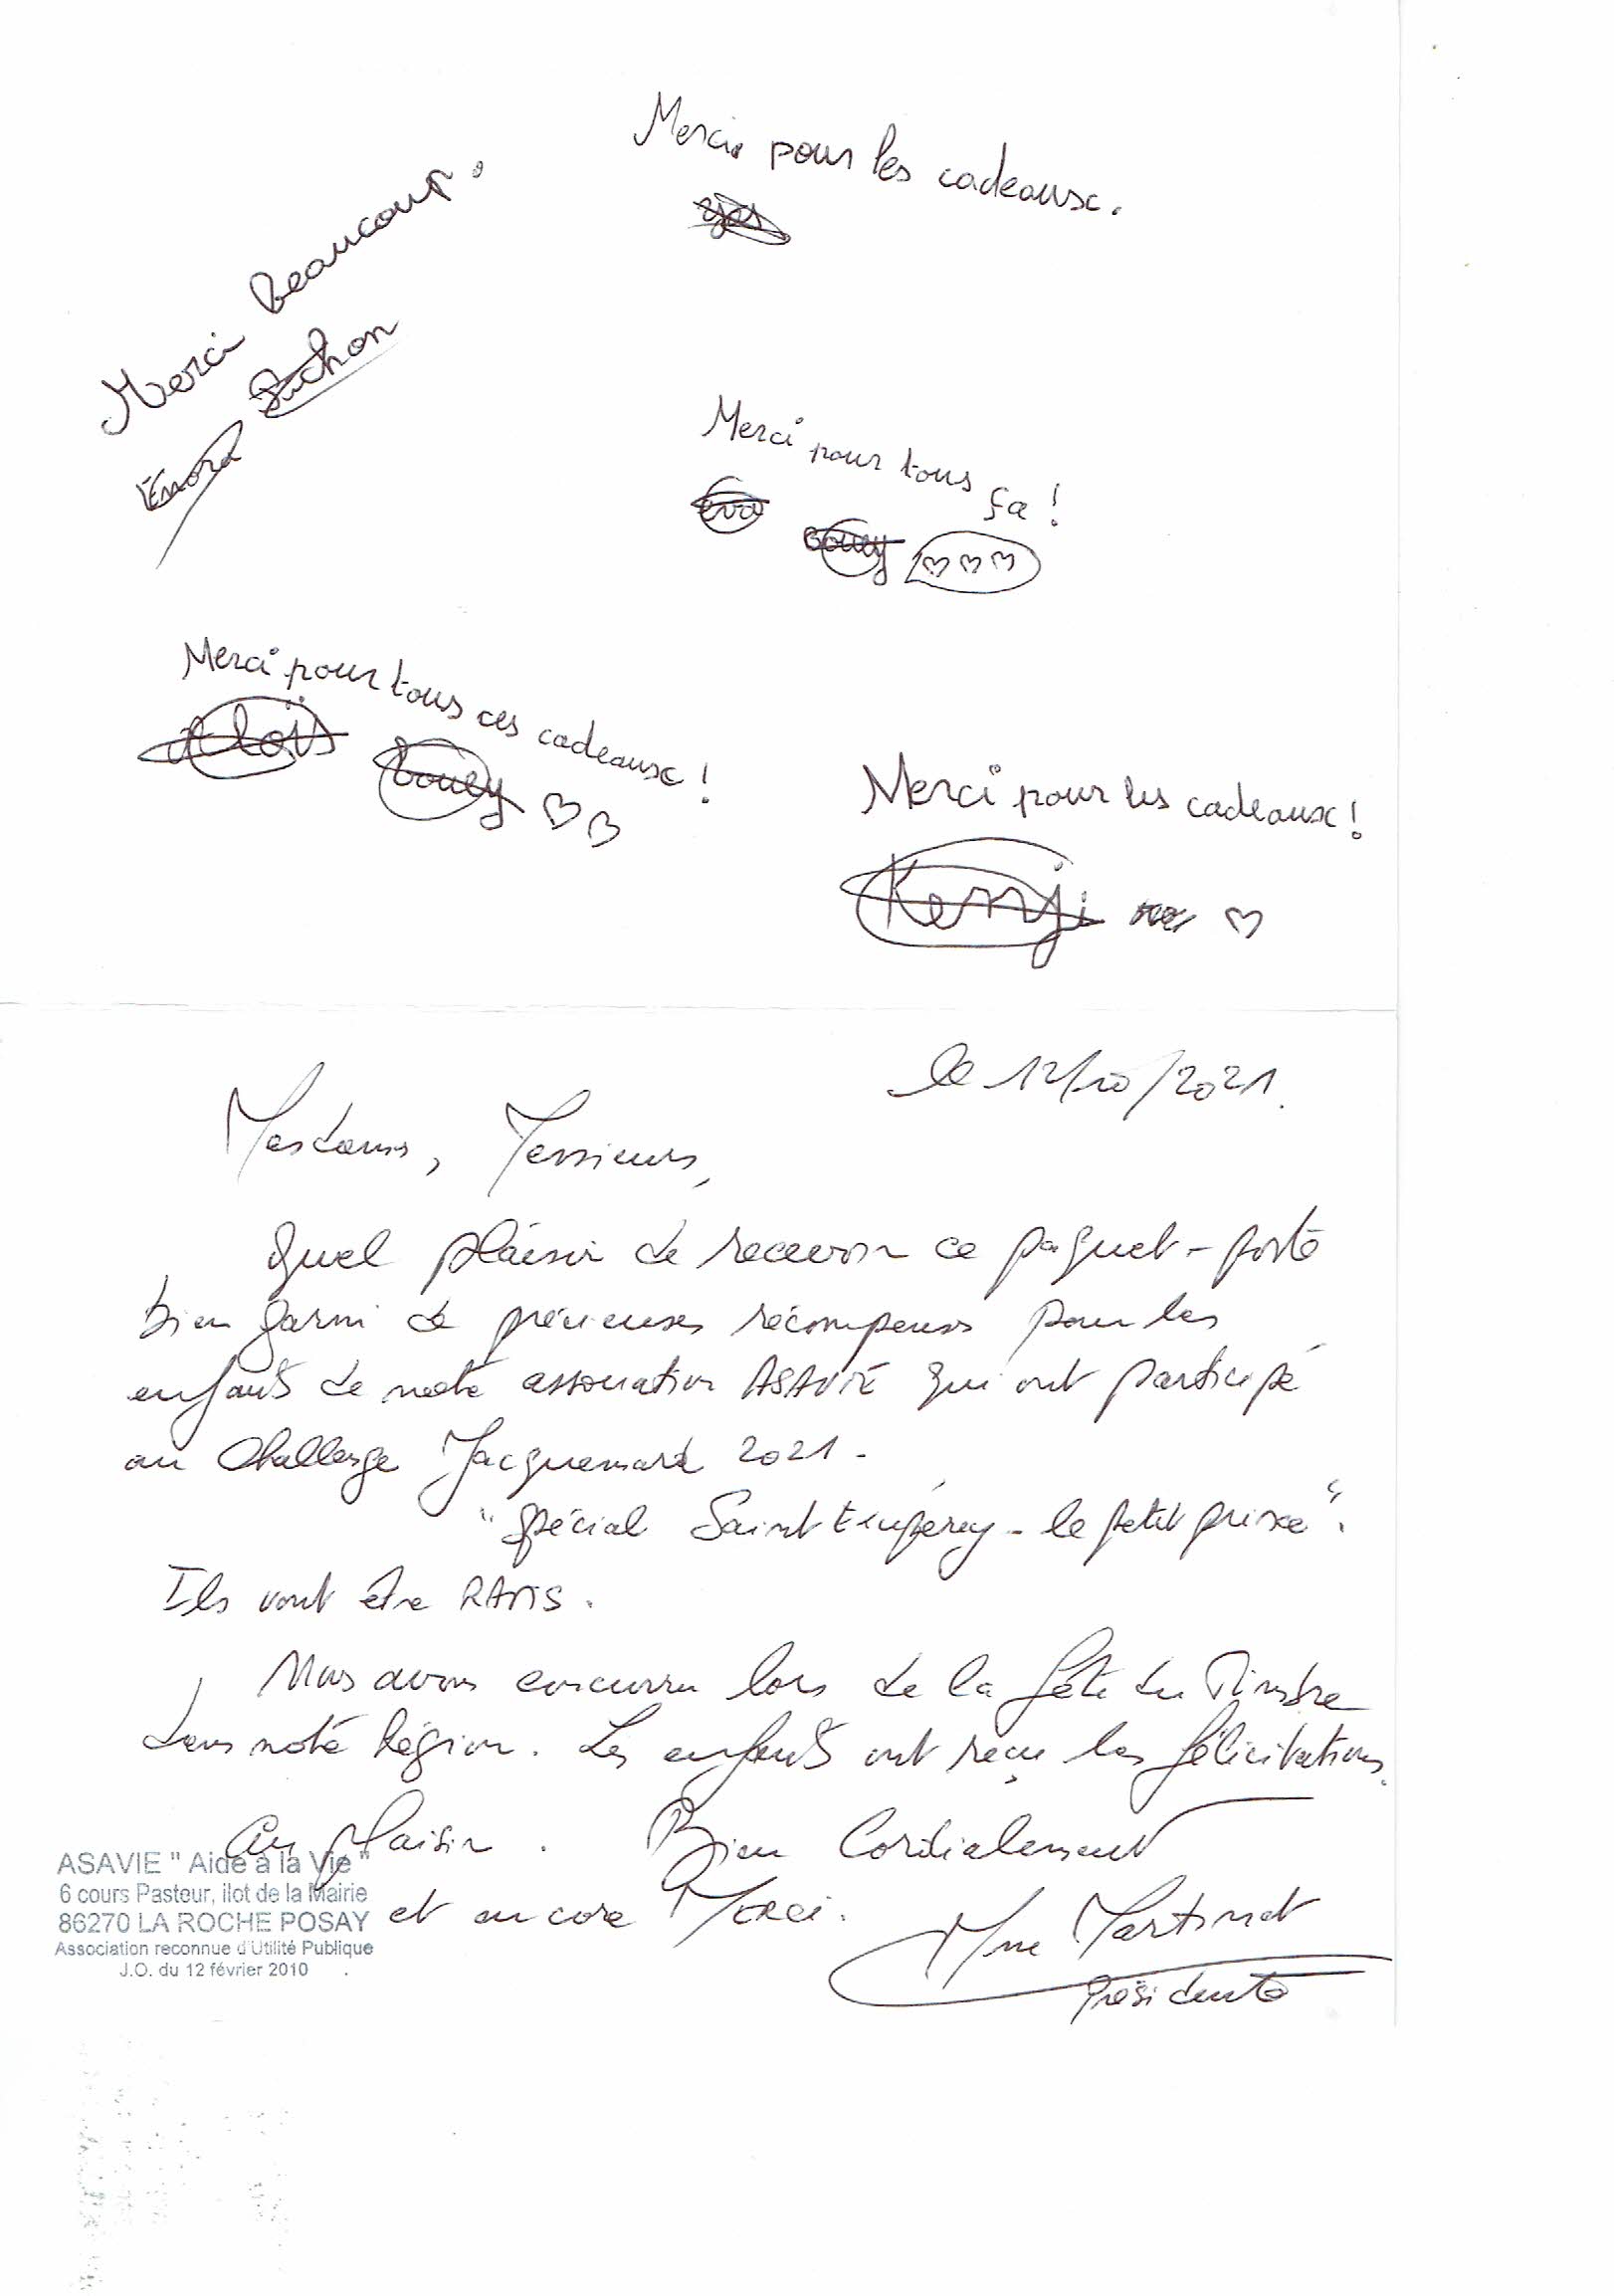 Merci pour les cadeaux.
Merci beaucoup.
Enora Pichon
Merci pour tous ça !
Eva Bouey
Merci pour tous ces cadeaux !
Aloïs Bouey
Merci pour les cadeaux !
Kenji
le 12/10/2021.
Mesdames, Messieurs,
Quel plaisir de recevoir ce paquet-poste
bien garni de précieuses récompenses pour les
enfants de notre association ASAVIE qui ont participé
au Challenge Jacquemard 2021 -
"Spécial Saint Exupéry - le petit prince".
Ils vont être RAVIS.
Nous avons concourru lors de la fête du Timbre
dans notre Région. Les enfants ont reçu les félicitations.
Au plaisir. Bien Cordialement
et encore Merci.
Mme Martinet
Présidente
ASAVIE " Aide à la Vie "
6 cours Pasteur, ilot de la Mairie
86270 LA ROCHE POSAY
Association reconnue d'Utilité Publique
J.O. du 12 février 2010